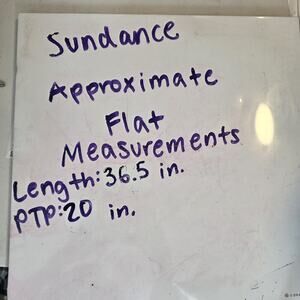 Sundance
Approximate
Flat
Measurements
Length: 36.5 in.
PTP: 20 in.